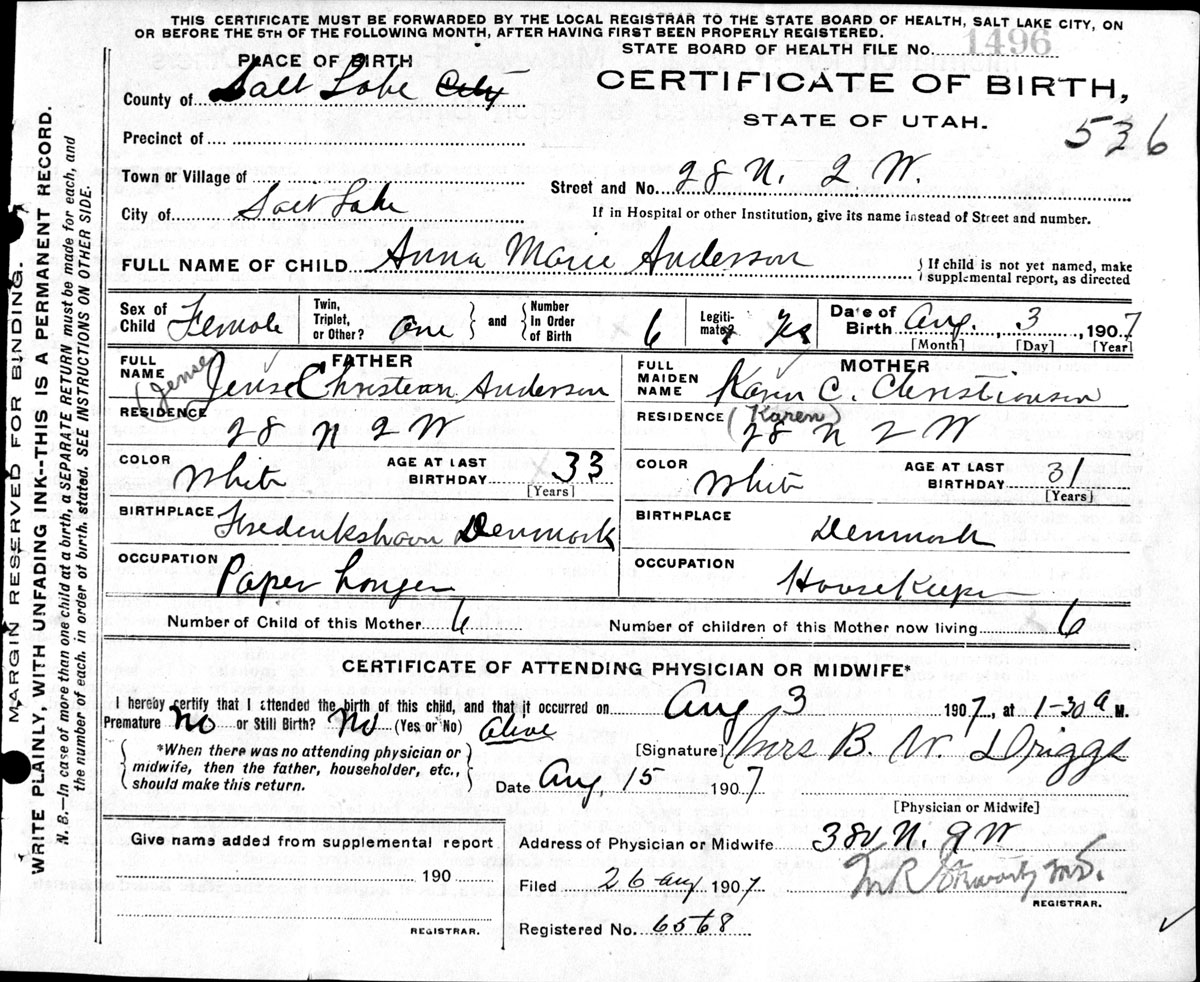 THIS CERTIFICATE MUST BE FORWARDED BY THE LOCAL REGISTRAR TO THE STATE BOARD OF HEALTH, SALT LAKE CITY, ON
OR BEFORE THE 5TH OF THE FOLLOWING MONTH, AFTER HAVING FIRST BEEN PROPERLY REGISTERED.
STATE BOARD OF HEALTH FILE No. 1496
PLACE OF BIRTH
CERTIFICATE OF BIRTH,
STATE OF UTAH.
536
County of Salt Lake City
Precinct of
Town or Village of
Street and No. 28 N. 2 W.
City of Salt Lake
If in Hospital or other Institution, give its name instead of Street and number.
FULL NAME OF CHILD Anna Marie Anderson
If child is not yet named, make supplemental report, as directed
Sex of Child Female
Twin, Triplet, or Other? one
and
Number In Order of Birth 6
Legitimate? Yes
Date of Birth Aug. 3, 1907
[Month] [Day] [Year]
FATHER
FULL NAME Jens Christian Anderson
(Jense)
RESIDENCE 28 N 2 W
COLOR White
AGE AT LAST BIRTHDAY 33
[Years]
BIRTHPLACE Frederikshavn Denmark
OCCUPATION Paper hanger
MOTHER
FULL MAIDEN NAME Karen C. Christiansen
RESIDENCE (Karen)
28 N 2 W
COLOR White
AGE AT LAST BIRTHDAY 31
[Years]
BIRTHPLACE Denmark
OCCUPATION HouseKeeper
Number of Child of this Mother 6
Number of children of this Mother now living 6
CERTIFICATE OF ATTENDING PHYSICIAN OR MIDWIFE*
I hereby certify that I attended the birth of this child, and that it occurred on Aug 3 1907, at 1-30 a M.
Premature No or Still Birth? No (Yes or No) alive
*When there was no attending physician or
midwife, then the father, householder, etc.,
should make this return.
[Signature] Mrs B. W. Driggs
Date Aug. 15 1907
[Physician or Midwife]
Give name added from supplemental report
190
REGISTRAR.
Address of Physician or Midwife 380 N. 9 W
Filed 26 Aug 1907
M.D.
REGISTRAR.
Registered No. 6568
MARGIN RESERVED FOR BINDING.
WRITE PLAINLY, WITH UNFADING INK--THIS IS A PERMANENT RECORD.
N. B.—In case of more than one child at a birth, a SEPARATE RETURN must be made for each, and
the number of each, in order of birth, stated. SEE INSTRUCTIONS ON OTHER SIDE.